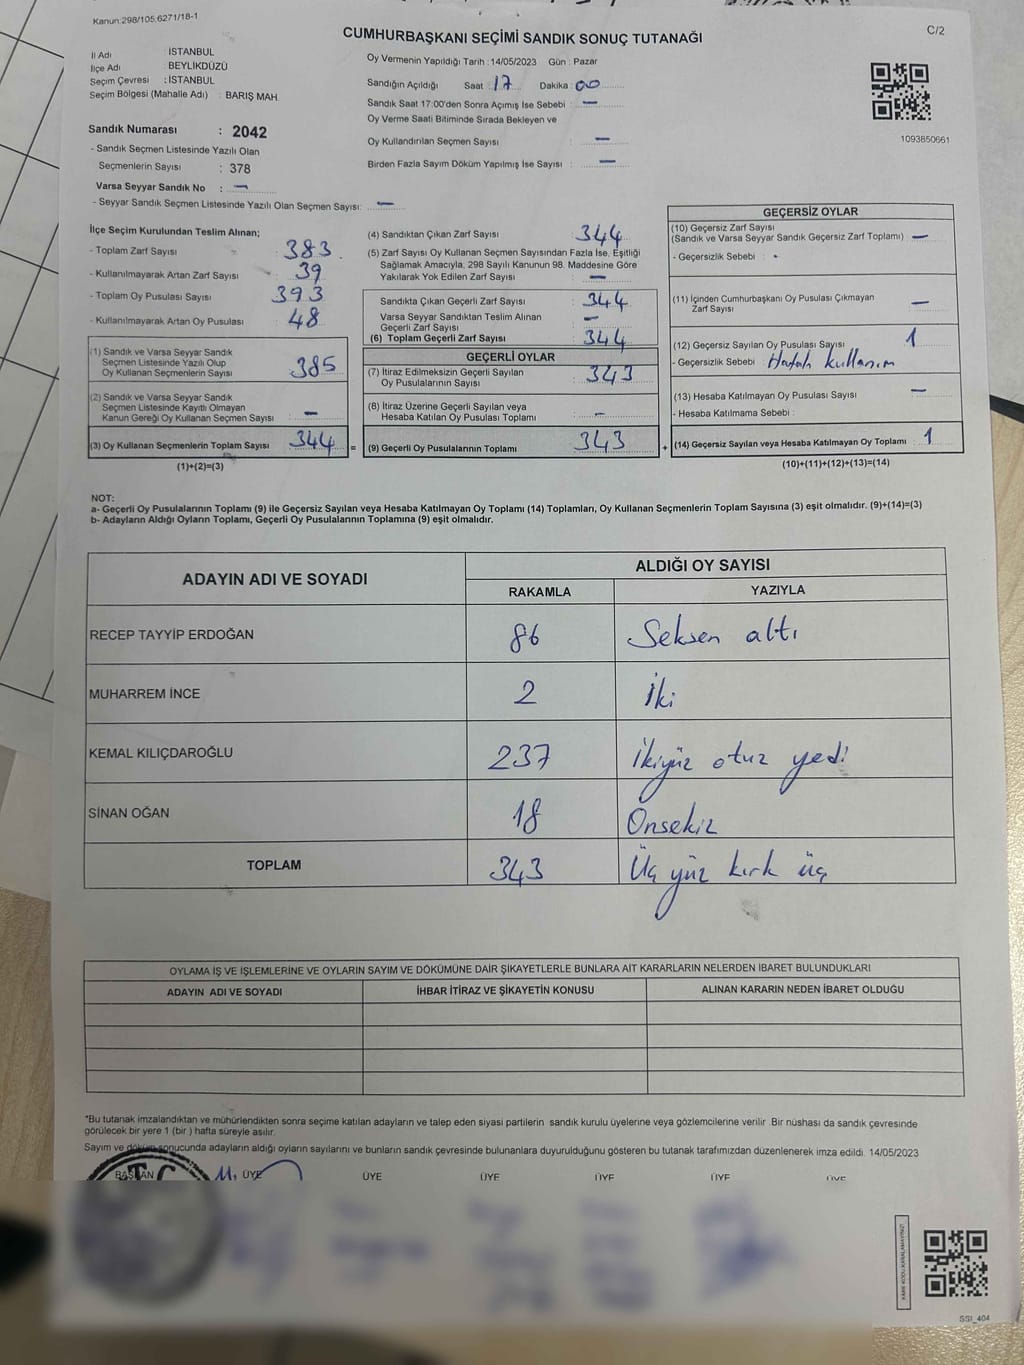 Kanun:298/105,6271/18-1
C/2
CUMHURBAŞKANI SEÇİMİ SANDIK SONUÇ TUTANAĞI
İl Adı : İSTANBUL
İlçe Adı : BEYLİKDÜZÜ
Seçim Çevresi : İSTANBUL
Seçim Bölgesi (Mahalle Adı) : BARIŞ MAH.
Sandık Numarası : 2042
- Sandık Seçmen Listesinde Yazılı Olan
Seçmenlerin Sayısı : 378
Varsa Seyyar Sandık No : —
- Seyyar Sandık Seçmen Listesinde Yazılı Olan Seçmen Sayısı: —
Oy Vermenin Yapıldığı Tarih : 14/05/2023 Gün : Pazar
Sandığın Açıldığı Saat : 17 Dakika : 00
Sandık Saat 17:00'den Sonra Açımış İse Sebebi : —
Oy Verme Saati Bitiminde Sırada Bekleyen ve
Oy Kullandırılan Seçmen Sayısı : —
Birden Fazla Sayım Döküm Yapılmış İse Sayısı : —
1093850661
İlçe Seçim Kurulundan Teslim Alınan;
- Toplam Zarf Sayısı : 383
- Kullanılmayarak Artan Zarf Sayısı : 39
- Toplam Oy Pusulası Sayısı : 393
- Kullanılmayarak Artan Oy Pusulası : 48
(1) Sandık ve Varsa Seyyar Sandık
Seçmen Listesinde Yazılı Olup
Oy Kullanan Seçmenlerin Sayısı 385
(2) Sandık ve Varsa Seyyar Sandık
Seçmen Listesinde Kayıtlı Olmayan
Kanun Gereği Oy Kullanan Seçmen Sayısı : —
(3) Oy Kullanan Seçmenlerin Toplam Sayısı : 344 =
(1)+(2)=(3)
(4) Sandıktan Çıkan Zarf Sayısı : 344
(5) Zarf Sayısı Oy Kullanan Seçmen Sayısından Fazla İse, Eşitliği
Sağlamak Amacıyla, 298 Sayılı Kanunun 98. Maddesine Göre
Yakılarak Yok Edilen Zarf Sayısı : —
Sandıkta Çıkan Geçerli Zarf Sayısı : 344
Varsa Seyyar Sandıktan Teslim Alınan
Geçerli Zarf Sayısı : —
(6) Toplam Geçerli Zarf Sayısı : 344
GEÇERLİ OYLAR
(7) İtiraz Edilmeksizin Geçerli Sayılan
Oy Pusulalarının Sayısı : 343
(8) İtiraz Üzerine Geçerli Sayılan veya
Hesaba Katılan Oy Pusulası Toplamı : —
(9) Geçerli Oy Pusulalarının Toplamı : 343 +
GEÇERSİZ OYLAR
(10) Geçersiz Zarf Sayısı
(Sandık ve Varsa Seyyar Sandık Geçersiz Zarf Toplamı) : —
- Geçersizlik Sebebi :
(11) İçinden Cumhurbaşkanı Oy Pusulası Çıkmayan
Zarf Sayısı : —
(12) Geçersiz Sayılan Oy Pusulası Sayısı : 1
- Geçersizlik Sebebi : Hatalı kullanım
(13) Hesaba Katılmayan Oy Pusulası Sayısı : —
- Hesaba Katılmama Sebebi :
(14) Geçersiz Sayılan veya Hesaba Katılmayan Oy Toplamı : 1
(10)+(11)+(12)+(13)=(14)
NOT:
a- Geçerli Oy Pusulalarının Toplamı (9) ile Geçersiz Sayılan veya Hesaba Katılmayan Oy Toplamı (14) Toplamları, Oy Kullanan Seçmenlerin Toplam Sayısına (3) eşit olmalıdır. (9)+(14)=(3)
b- Adayların Aldığı Oyların Toplamı, Geçerli Oy Pusulalarının Toplamına (9) eşit olmalıdır.
ADAYIN ADI VE SOYADI
ALDIĞI OY SAYISI
RAKAMLA YAZIYLA
RECEP TAYYİP ERDOĞAN 86 Seksen altı
MUHARREM İNCE 2 İki
KEMAL KILIÇDAROĞLU 237 İkiyüz otuz yedi
SİNAN OĞAN 18 Onsekiz
TOPLAM 343 Üç yüz kırk üç
OYLAMA İŞ VE İŞLEMLERİNE VE OYLARIN SAYIM VE DÖKÜMÜNE DAİR ŞİKAYETLERLE BUNLARA AİT KARARLARIN NELERDEN İBARET BULUNDUKLARI
ADAYIN ADI VE SOYADI İHBAR İTİRAZ VE ŞİKAYETİN KONUSU ALINAN KARARIN NEDEN İBARET OLDUĞU
*Bu tutanak imzalandıktan ve mühürlendikten sonra seçime katılan adayların ve talep eden siyasi partilerin sandık kurulu üyelerine veya gözlemcilerine verilir. Bir nüshası da sandık çevresinde
görülecek bir yere 1 (bir ) hafta süreyle asılır.
Sayım ve döküm sonucunda adayların aldığı oyların sayılarını ve bunların sandık çevresinde bulunanlara duyurulduğunu gösteren bu tutanak tarafımızdan düzenlenerek imza edildi. 14/05/2023
BAŞKAN ÜYE ÜYE ÜYE ÜYE ÜYE ÜYE
T.C.
SSI_404